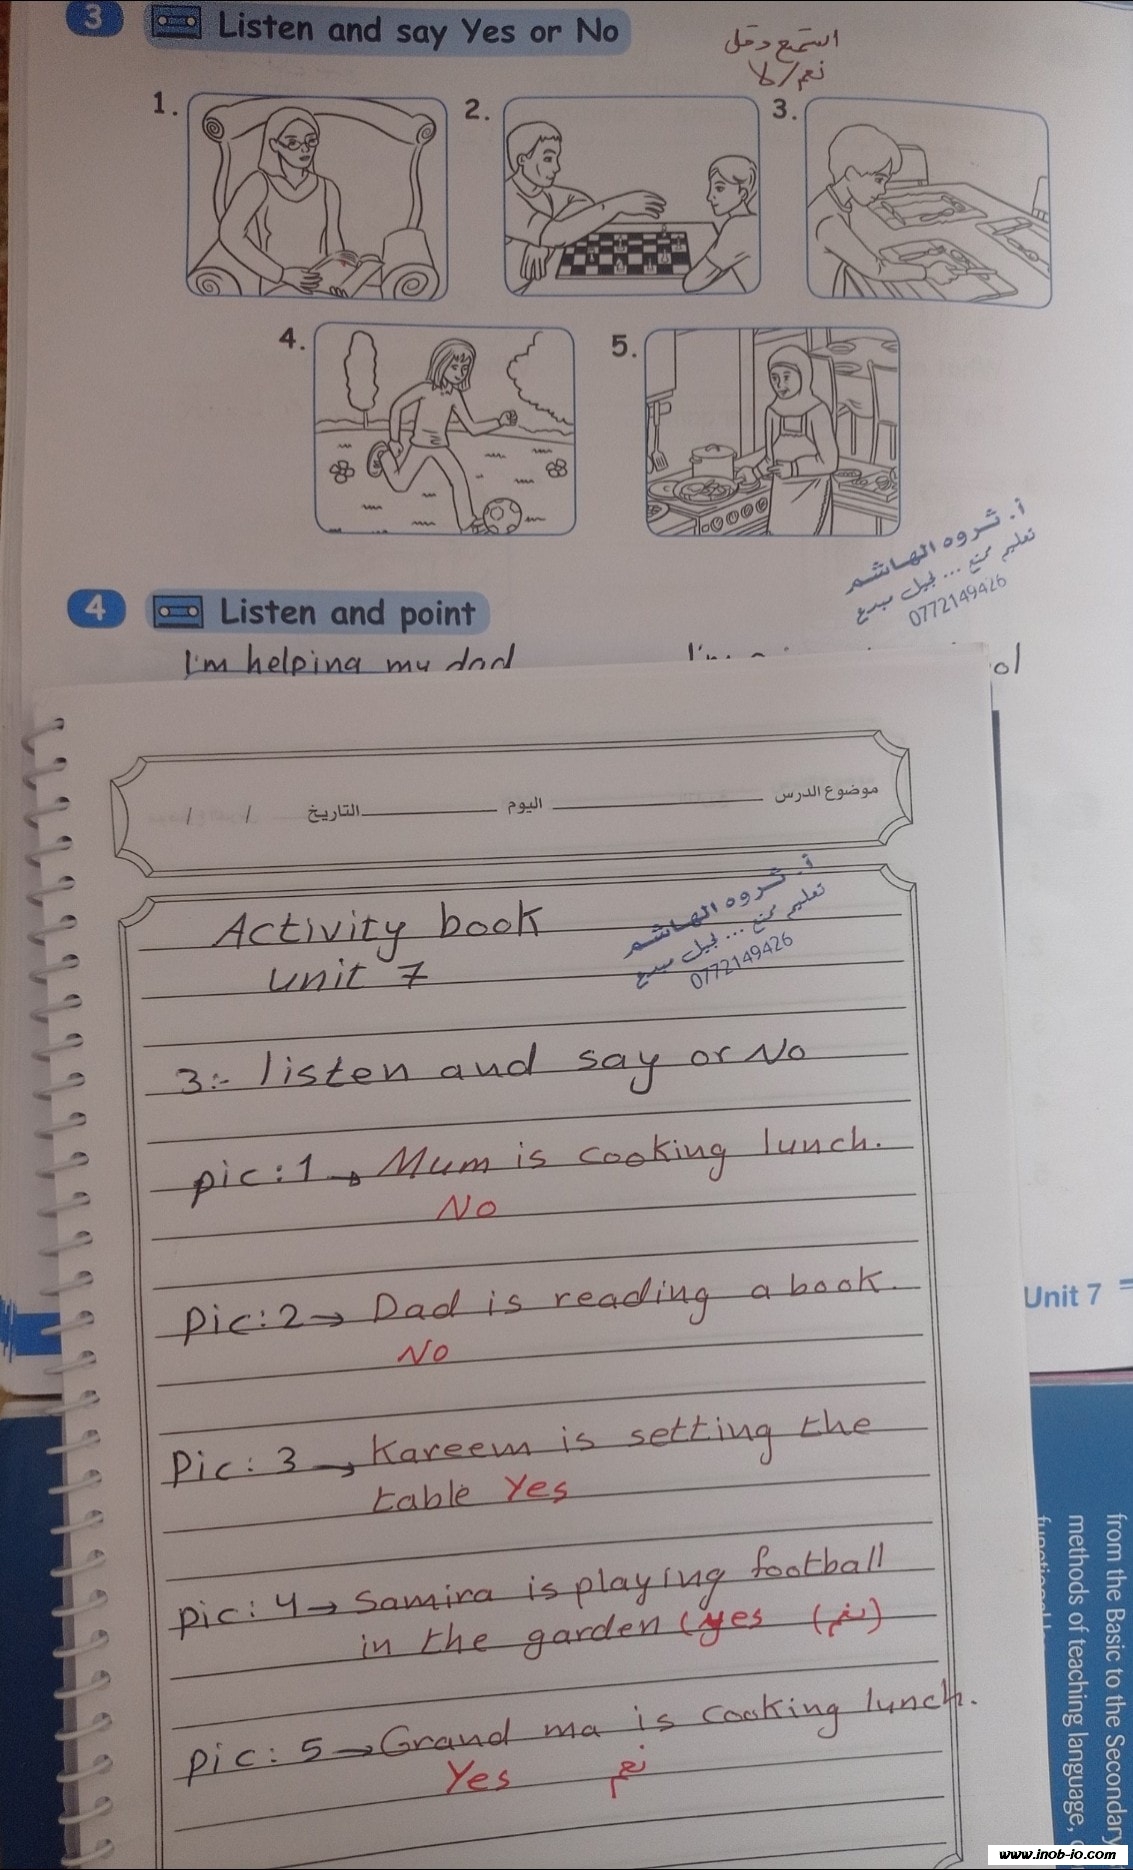 3 Listen and say Yes or No
استمع وقل
نعم/لا
1.
2.
3.
4.
5.
أ. ثروه الهاشم
تعليم ممتع ... لجيل مبدع
0772149426
4 Listen and point
I'm helping my dad
موضوع الدرس اليوم التاريخ / /
أ. ثروه الهاشم
تعليم ممتع ... لجيل مبدع
0772149426
Activity book
unit 7
3:- listen and say or No
pic:1 → Mum is cooking lunch.
No
Pic:2 → Dad is reading a book.
No
Pic: 3 → Kareem is setting the
table Yes
Pic: 4 → Samira is playing football
in the garden (yes (نعم)
Pic: 5 → Grand ma is cooking lunch.
Yes نعم
Unit 7
from the Basic to the Secondary
methods of teaching language,
www.inob-io.com